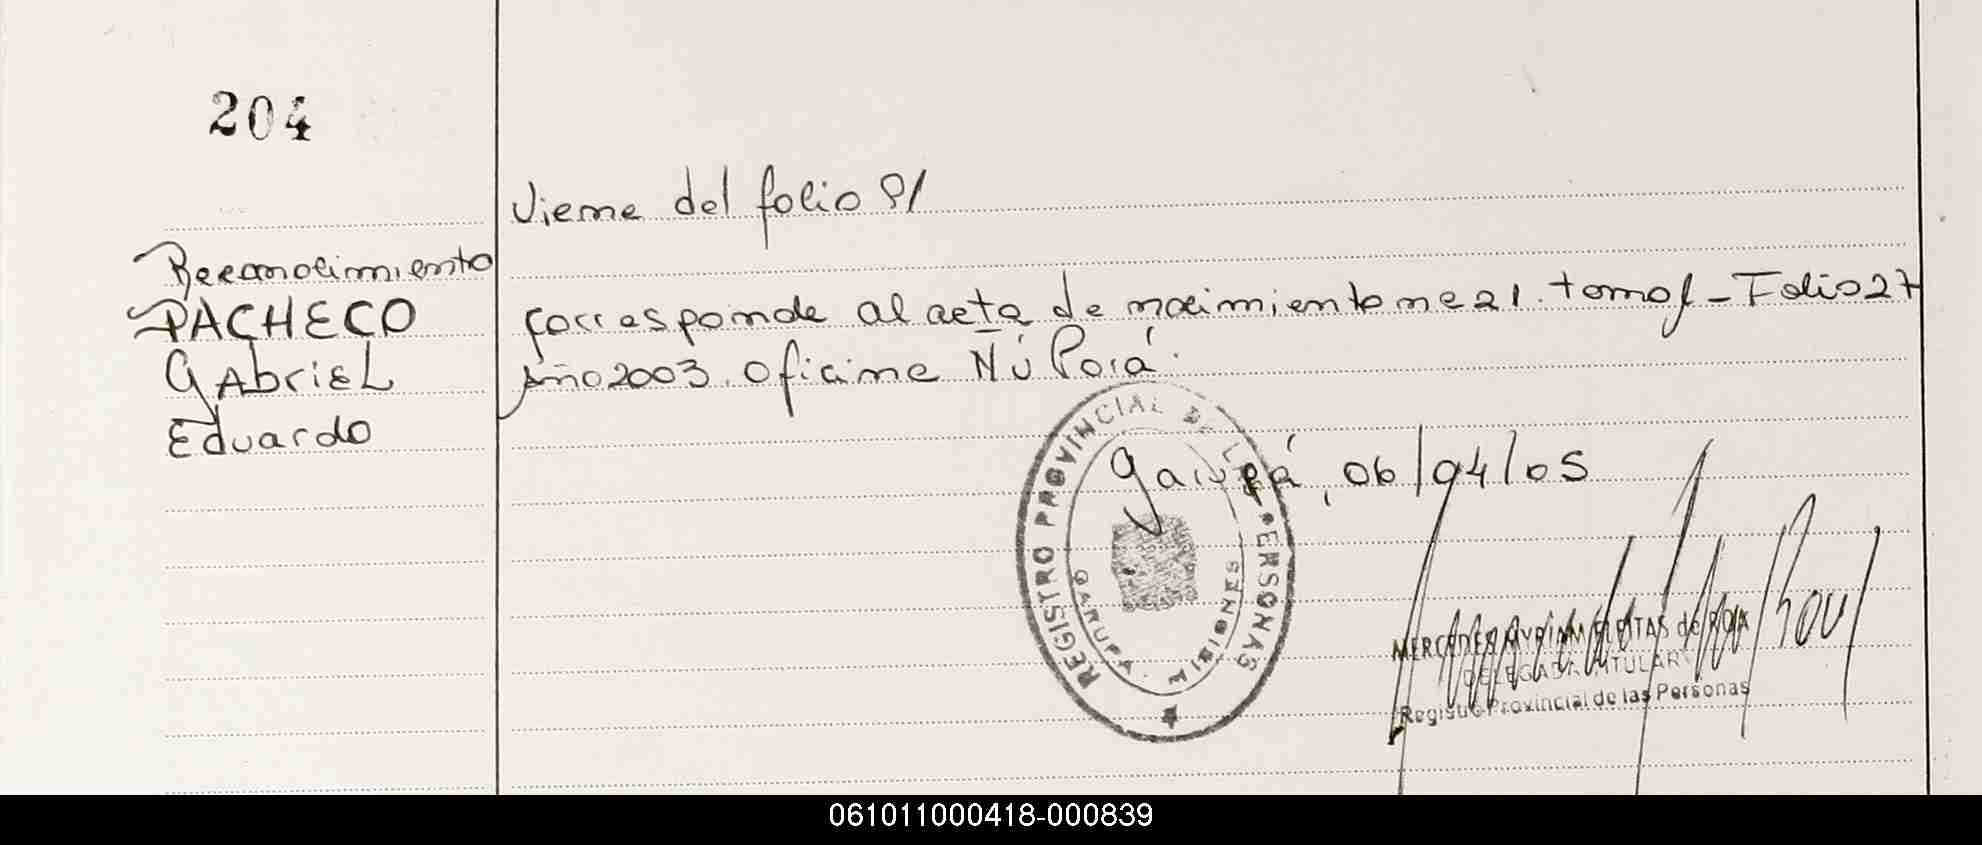 204
Viene del folio 91
Reconocimiento
PACHECO
Gabriel
Eduardo
Corresponde al acta de nacimiento nº 21. tomo 1 - Folio 27
Año 2003. Oficina Ñú Porá.
Garupá, 06/04/05
REGISTRO PROVINCIAL DE L PERSONAS
GARUPA - MISIONES
MERCEDES MYRIAM de ROJA
DELEGADA TITULAR
Registro Provincial de las Personas
061011000418-000839